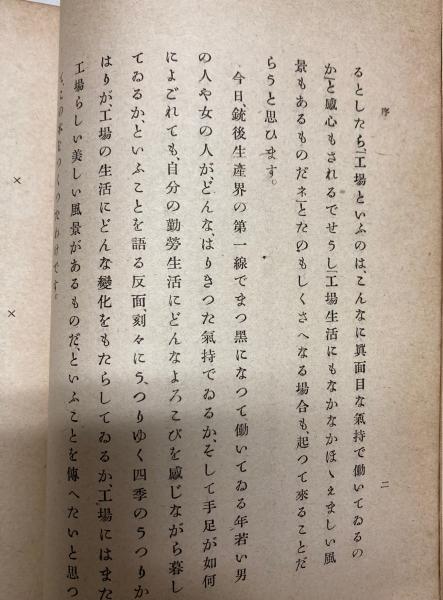 序
二
るとしたら、「工場といふのは、こんなに眞面目な氣持で働いてゐるの
か」と感心もされるでせうし「工場生活にもなかなかほゝゑましい風
景もあるものだネ」とたのもしくさへなる場合も、起つて來ることだ
らうと思ひます。
今日、銃後生產界の第一線でまつ黑になつて働いてゐる年若い男
の人や女の人が、どんな、はりきつた氣持でゐるか、そして手足が如何
によごれても、自分の勤勞生活にどんなよろこびを感じながら暮し
てゐるか、といふことを語る反面、刻々にうつりゆく四季のうつりか
はりが、工場の生活にどんな變化をもたらしてゐるか、工場にはまた
工場らしい美しい風景があるものだ、といふことを傳へたいと思つ
わけです。
×
×